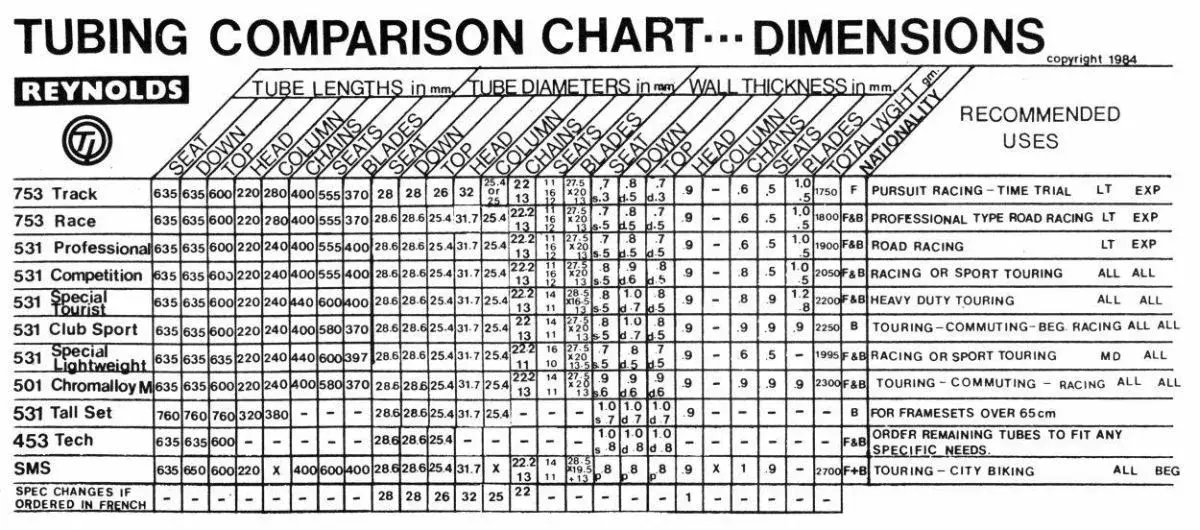 TUBING COMPARISON CHART... DIMENSIONS
copyright 1984
REYNOLDS
TI
TUBE LENGTHS in mm. TUBE DIAMETERS in mm WALL THICKNESS in mm.
SEAT DOWN TOP HEAD COLUMN CHAINS SEATS BLADES SEAT DOWN TOP HEAD COLUMN CHAINS SEATS BLADES SEAT DOWN TOP HEAD COLUMN CHAINS SEATS BLADES TOTAL WGHT gm. NATIONALITY
RECOMMENDED
USES
753 Track 635 635 600 220 280 400 555 370 28 28 26 32 25.4 or 25 22 13 11 16 12 27.5 x20 13 .7 s.3 .8 d.5 .7 d.3 .9 - .6 .5 1.0 .5 1750 F PURSUIT RACING - TIME TRIAL LT EXP
753 Race 635 635 600 220 280 400 555 370 28.6 28.6 25.4 31.7 25.4 22.2 13 11 16 12 27.5 x20 13 .7 s.5 .8 d.5 .7 d.5 .9 - .6 .5 1.0 .5 1800 F&B PROFESSIONAL TYPE ROAD RACING LT EXP
531 Professional 635 635 600 220 240 400 555 400 28.6 28.6 25.4 31.7 25.4 22.2 13 11 16 12 27.5 x20 13 .7 s.5 .8 d.5 .7 d.5 .9 - .6 .5 1.0 .5 1900 F&B ROAD RACING LT EXP
531 Competition 635 635 600 220 240 400 555 400 28.6 28.6 25.4 31.7 25.4 22.2 13 11 16 12 27.5 x20 13 .8 s.5 .9 d.6 .8 d.5 .9 - .8 .5 1.0 .5 2050 F&B RACING OR SPORT TOURING ALL ALL
531 Special Tourist 635 635 600 220 240 440 600 400 28.6 28.6 25.4 31.7 25.4 22.2 13 14 11 28.5 x16.5 13 .8 s.5 1.0 d.7 .8 d.5 .9 - .8 .9 1.2 .8 2200 F&B HEAVY DUTY TOURING ALL ALL
531 Club Sport 635 635 600 220 240 400 580 370 28.6 28.6 25.4 31.7 25.4 22 13 14 11 27.5 x20 13 .8 s.5 1.0 d.7 .8 d.5 .9 - .9 .9 .9 2250 B TOURING - COMMUTING - BEG. RACING ALL ALL
531 Special Lightweight 635 635 600 220 240 440 600 397 28.6 28.6 25.4 31.7 25.4 22.2 11 16 10 27.5 x20 13.5 .7 s.5 .8 d.5 .7 d.5 .9 - .6 .5 - 1995 F&B RACING OR SPORT TOURING MD ALL
501 Chromalloy M 635 635 600 220 240 400 580 370 28.6 28.6 25.4 31.7 25.4 22.2 13 14 11 27.5 x20 13 .9 s.6 .9 d.6 .9 d.6 .9 - .9 .9 .9 2300 F&B TOURING - COMMUTING - RACING ALL ALL
531 Tall Set 760 760 760 320 380 - - - 28.6 28.6 25.4 31.7 25.4 - - - 1.0 s.7 1.0 d.7 1.0 d.7 .9 - - - - - B FOR FRAMESETS OVER 65cm
453 Tech 635 635 600 - - - - - 28.6 28.6 25.4 - - - - - 1.0 s.8 1.0 d.8 1.0 d.8 - - - - - - F&B ORDER REMAINING TUBES TO FIT ANY SPECIFIC NEEDS.
SMS 635 650 600 220 X 400 600 400 28.6 28.6 25.4 31.7 X 22.2 13 14 11 28.5 x19.5 +13 .8 p .8 p .8 p .9 X 1 .9 - 2700 F+B TOURING - CITY BIKING ALL BEG
SPEC CHANGES IF ORDERED IN FRENCH - - - - - - - - 28 28 26 32 25 22 - - - - - 1 - - - - -